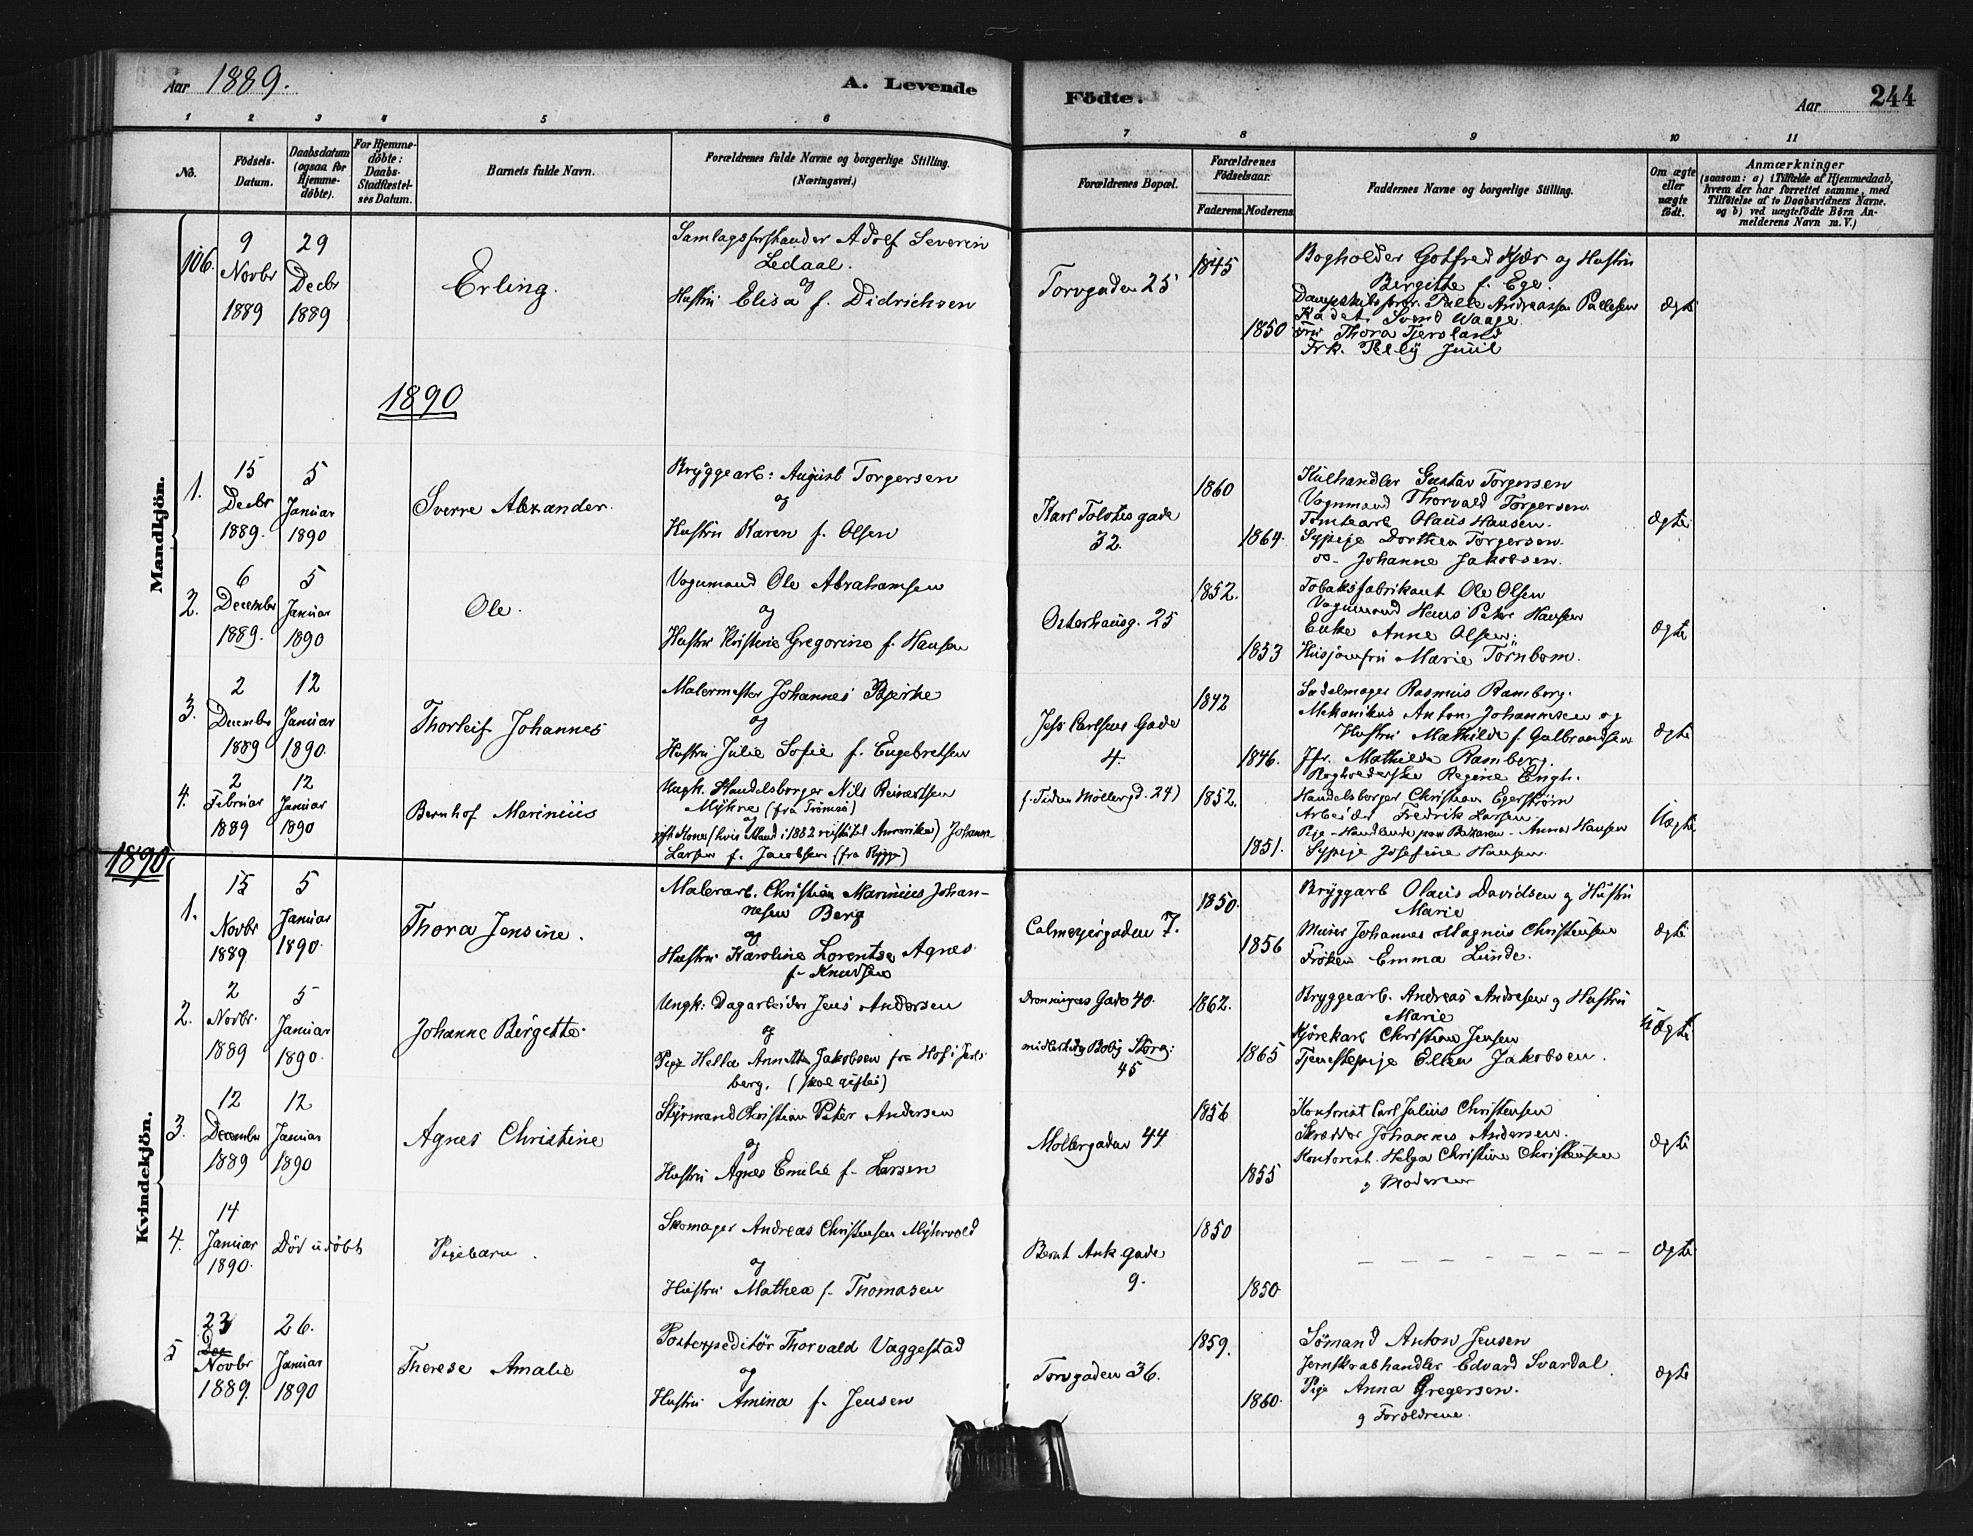 Aar 1889.
A. Levende
Födte.
Aar
244
1 2 3 4 5 6 7 8 9 10 11
No.
Födsels-Datum.
Daabsdatum (ogsaa for Hjemmedöbte).
For Hjemmedöbte: Daabs-Stadfæstelses Datum.
Barnets fulde Navn.
Forældrenes fulde Navne og borgerlige Stilling. (Næringsvei.)
Forældrenes Bopæl.
Forældrenes Födselsaar.
Faderens. Moderens.
Faddernes Navne og borgerlige Stilling.
Om ægte eller uægte födt.
Anmærkninger
(saasom: a) i Tilfælde af Hjemmedaab, hvem der har forrettet samme, med Tilföielse af to Daabsvidners Navne. og b) ved uægtefödte Börn Anmelderens Navn m. V.)
Mandkjön.
106.
9 Novbr 1889
29 Decbr 1889
Erling.
Samlagsforstander Adolf Severin
Ledaal.
og
Hustru Elisa f. Didrichsen
Torvgaden 25
1845
1850
Bogholder Gotfred Kjær og Hustru
Bergitte f. Ege.
Andreassen Pallesen
Kadet Svend Waage
Fru Thora
Frk. Juul
Ægte
1890
1.
15 Decbr 1889.
5 Januar 1890
Sverre Alexander.
Bryggearb: August Torgersen
og
Hustru Karen f. Olsen
32.
1860
1864.
Kulhandler Gustav Torgersen
Vognmand Thorvald Torgersen.
Tomtearb Olaus Hansen.
Sypige Dorthea Torgersen
do- Johanne Jakobsen.
Ægte
2.
6 December 1889.
5 Januar 1890
Ole.
Vognmand Ole Abrahamsen
og
Hustru Kristine Gregorine f. Hansen
Osterhausg. 25
1852.
1853
Tobaksfabrikant Ole Olsen
Vognmand Hans Peter Hansen
Enke Anne Olsen.
Husjomfru Marie Törnbom.
Ægte
3.
2 December 1889
12 Januar 1890.
Thorleif Johannes
Malermester Johannes Bjerke
og
Hustru Julie Sofie f. Engebretsen
Jess Carlsens Gade
4.
1842
1846.
Sadelmager Rasmus Ramberg.
Mekanikus Anton Johannesen og
Hustru Mathilde f. Gulbrandsen
Jfr. Mathilde Ramberg.
Bogholderske Regine Engh.
Ægte
4.
2 Februar 1889
12 Januar 1890
Bernhof Marinius
Ungk. Handelsborger Nils Reinertsen
Myhre (fra Tromsö)
og
Kone (hvis Mand i 1882 reiste til Amerika) Johanne
Larsen f. Jacobsen (fra Rygge)
f. Tiden Möllergd. 24)
1852.
1851.
Handelsborger Christian Egerström
Arbeider Fredrik Larsen.
Pige - Handlende paa Bazaren - Anna Hansen
Sypige Josefine Hansen.
Uægte
1890
Kvindekjön.
1.
15 Novbr 1889
5 Januar 1890.
Thora Jensine.
Malerarb. Christian Marinius Johan-
nesen Berg
og
Hustru Karoline Lorentse Agnes
f. Knudsen
Calmeyergaden 7.
1850.
1856
Bryggarb Olaus Davidsen og Hustru
Marie
Murer Johannes Magnus Christensen
Fröken Emma Lunde.
Ægte
2.
2 Novbr. 1889
5 Januar 1890.
Johanne Bergette.
Ungk: Dagarbeider Jens Andersen
og
Pige Hella Annette Jakobsen fra Hof i Jarls-
berg. (skal giftes)
Dronningens Gade 40.
midlertidig Bolig Storg:
45
1862.
1865
Bryggearb. Andreas Andresen og Hustru
Marie
Kjörekarl Christian Jensen
Tjenestepige Ellen Jakobsen.
Uægte
3.
12 December 1889
12 Januar 1890
Agnes Christine
Styrmand Christian Peter Andersen
og
Hustru Agnes Emilie f. Larsen
Möllergaden 44
1856
1855
Kontorist Carl Julius Christensen
Skrædder Johannes Andersen.
Kontorist. Helga Christine Christensen
og Moderen
Ægte
4.
14 Januar 1890.
Död udöbt
Pigebarn.
Skomager Andreas Christensen Myhrvold
og
Hustru Mathea f. Thomasen
Bernt Ank gade
9.
1850
1850
Ægte
5
23 Novbr 1889.
26. Januar 1890
Therese Amalie
Postexpeditör Thorvald Vaggestad
og
Hustru Amina f. Jensen
Torvgaden 36.
1859.
1860.
Sömand Anton Jensen
Jernskrabhandler Edvard Svardal
Pige Anna Gregersen.
og Forældrene.
Ægte